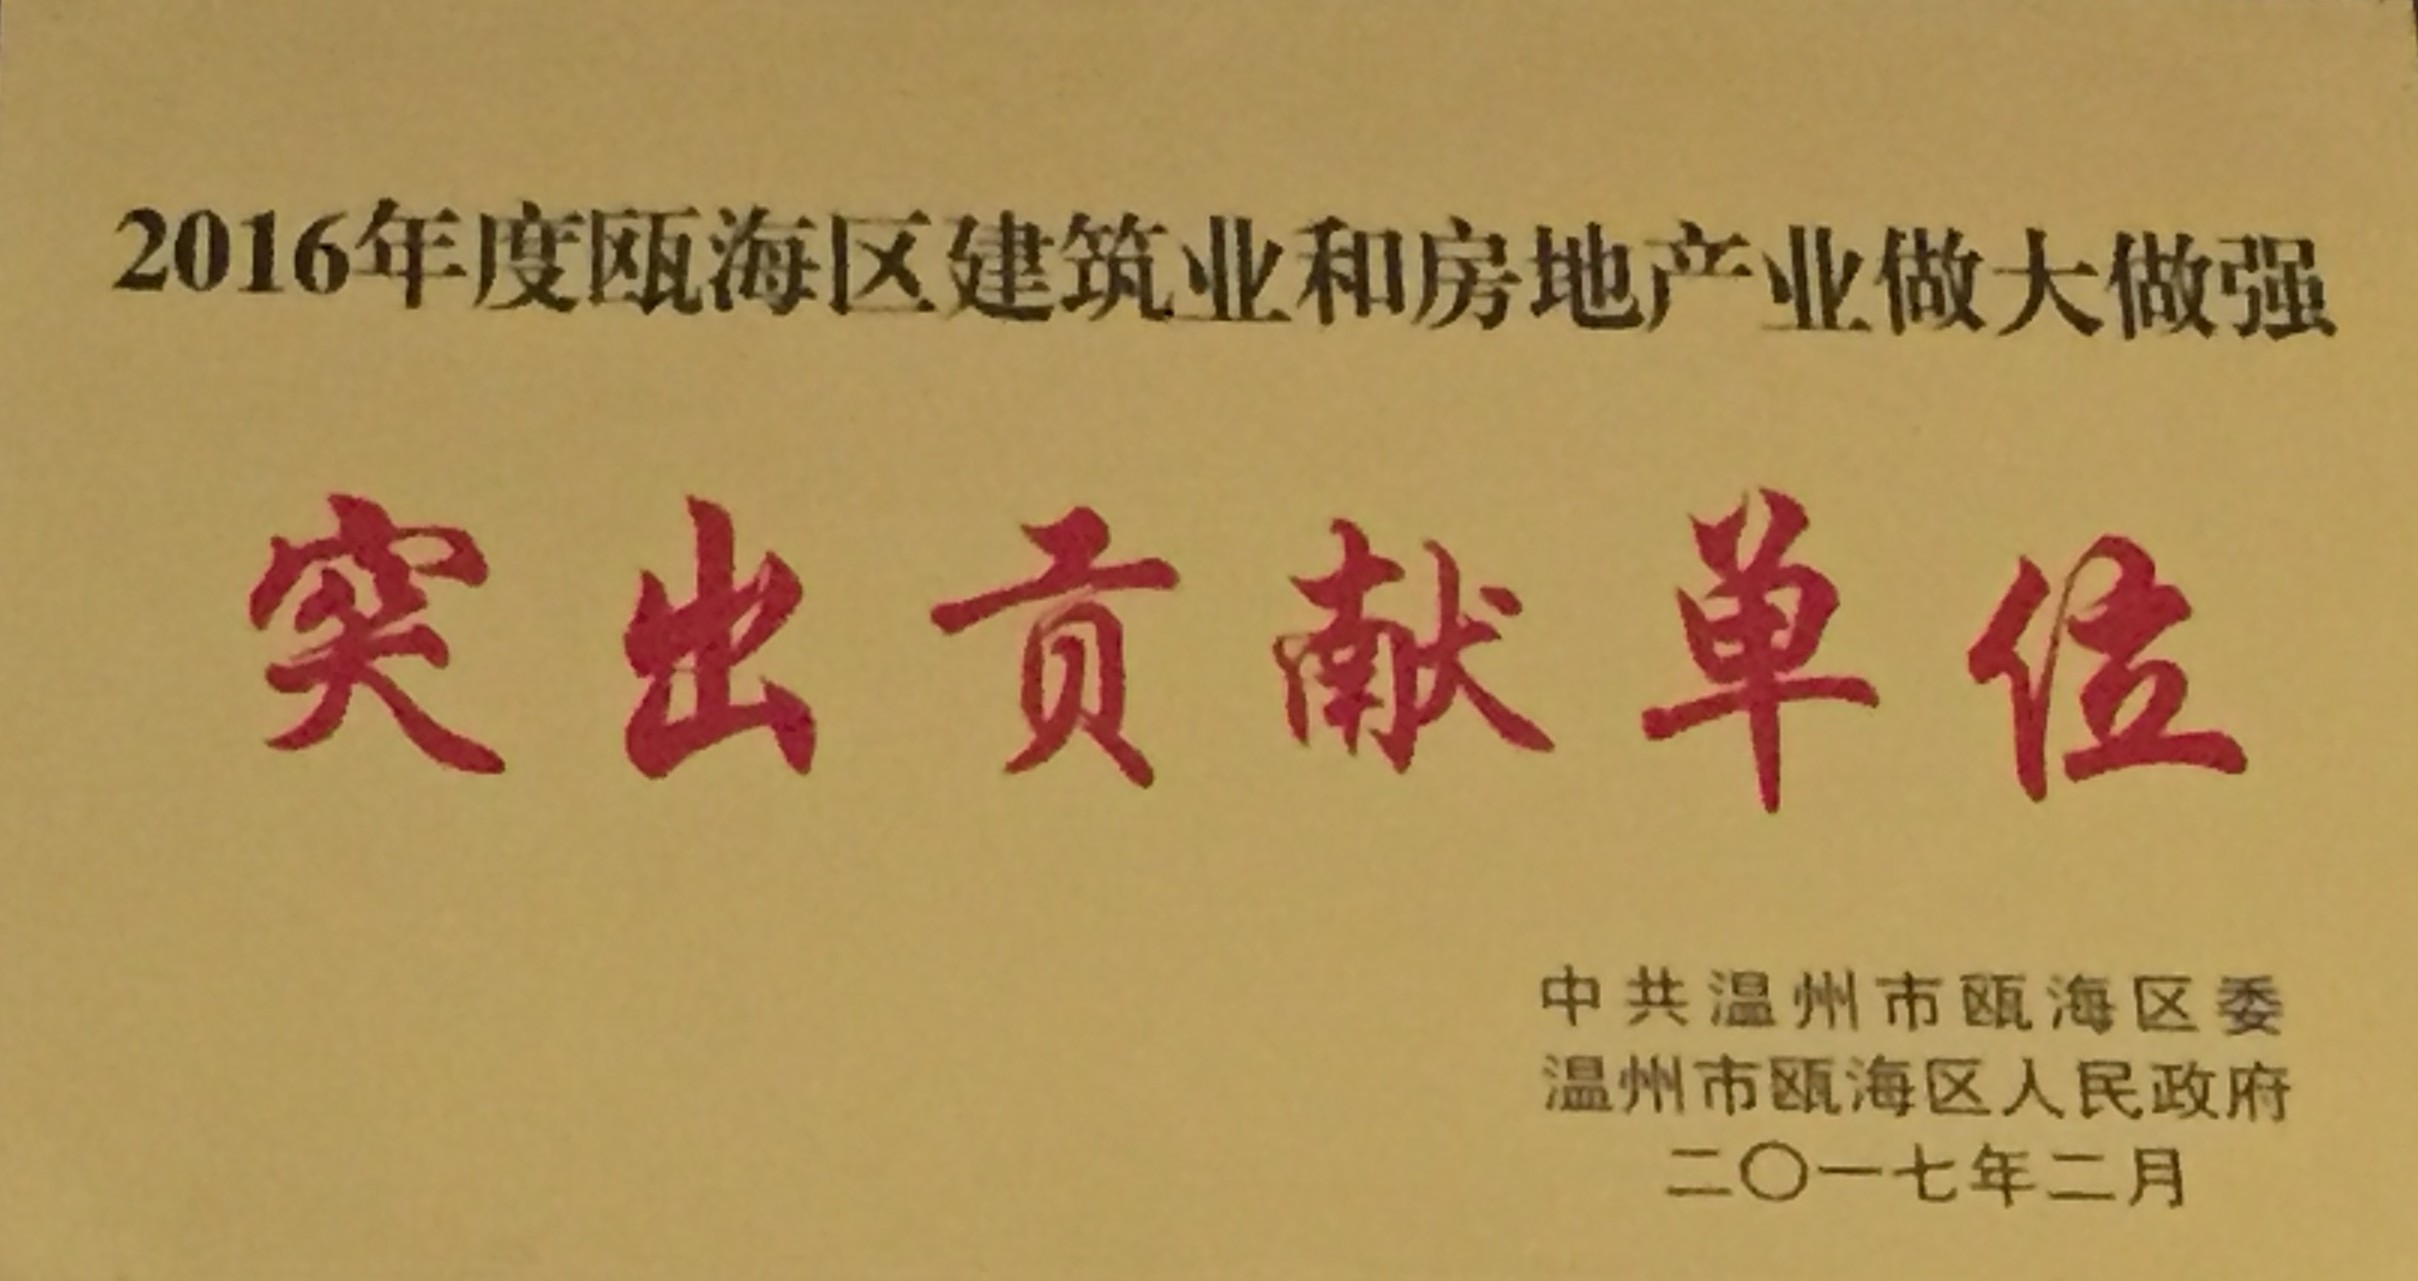 2016年度瓯海区建筑业和房地产业做大做强
突出贡献单位
中共温州市瓯海区委
温州市瓯海区人民政府
二〇一七年二月